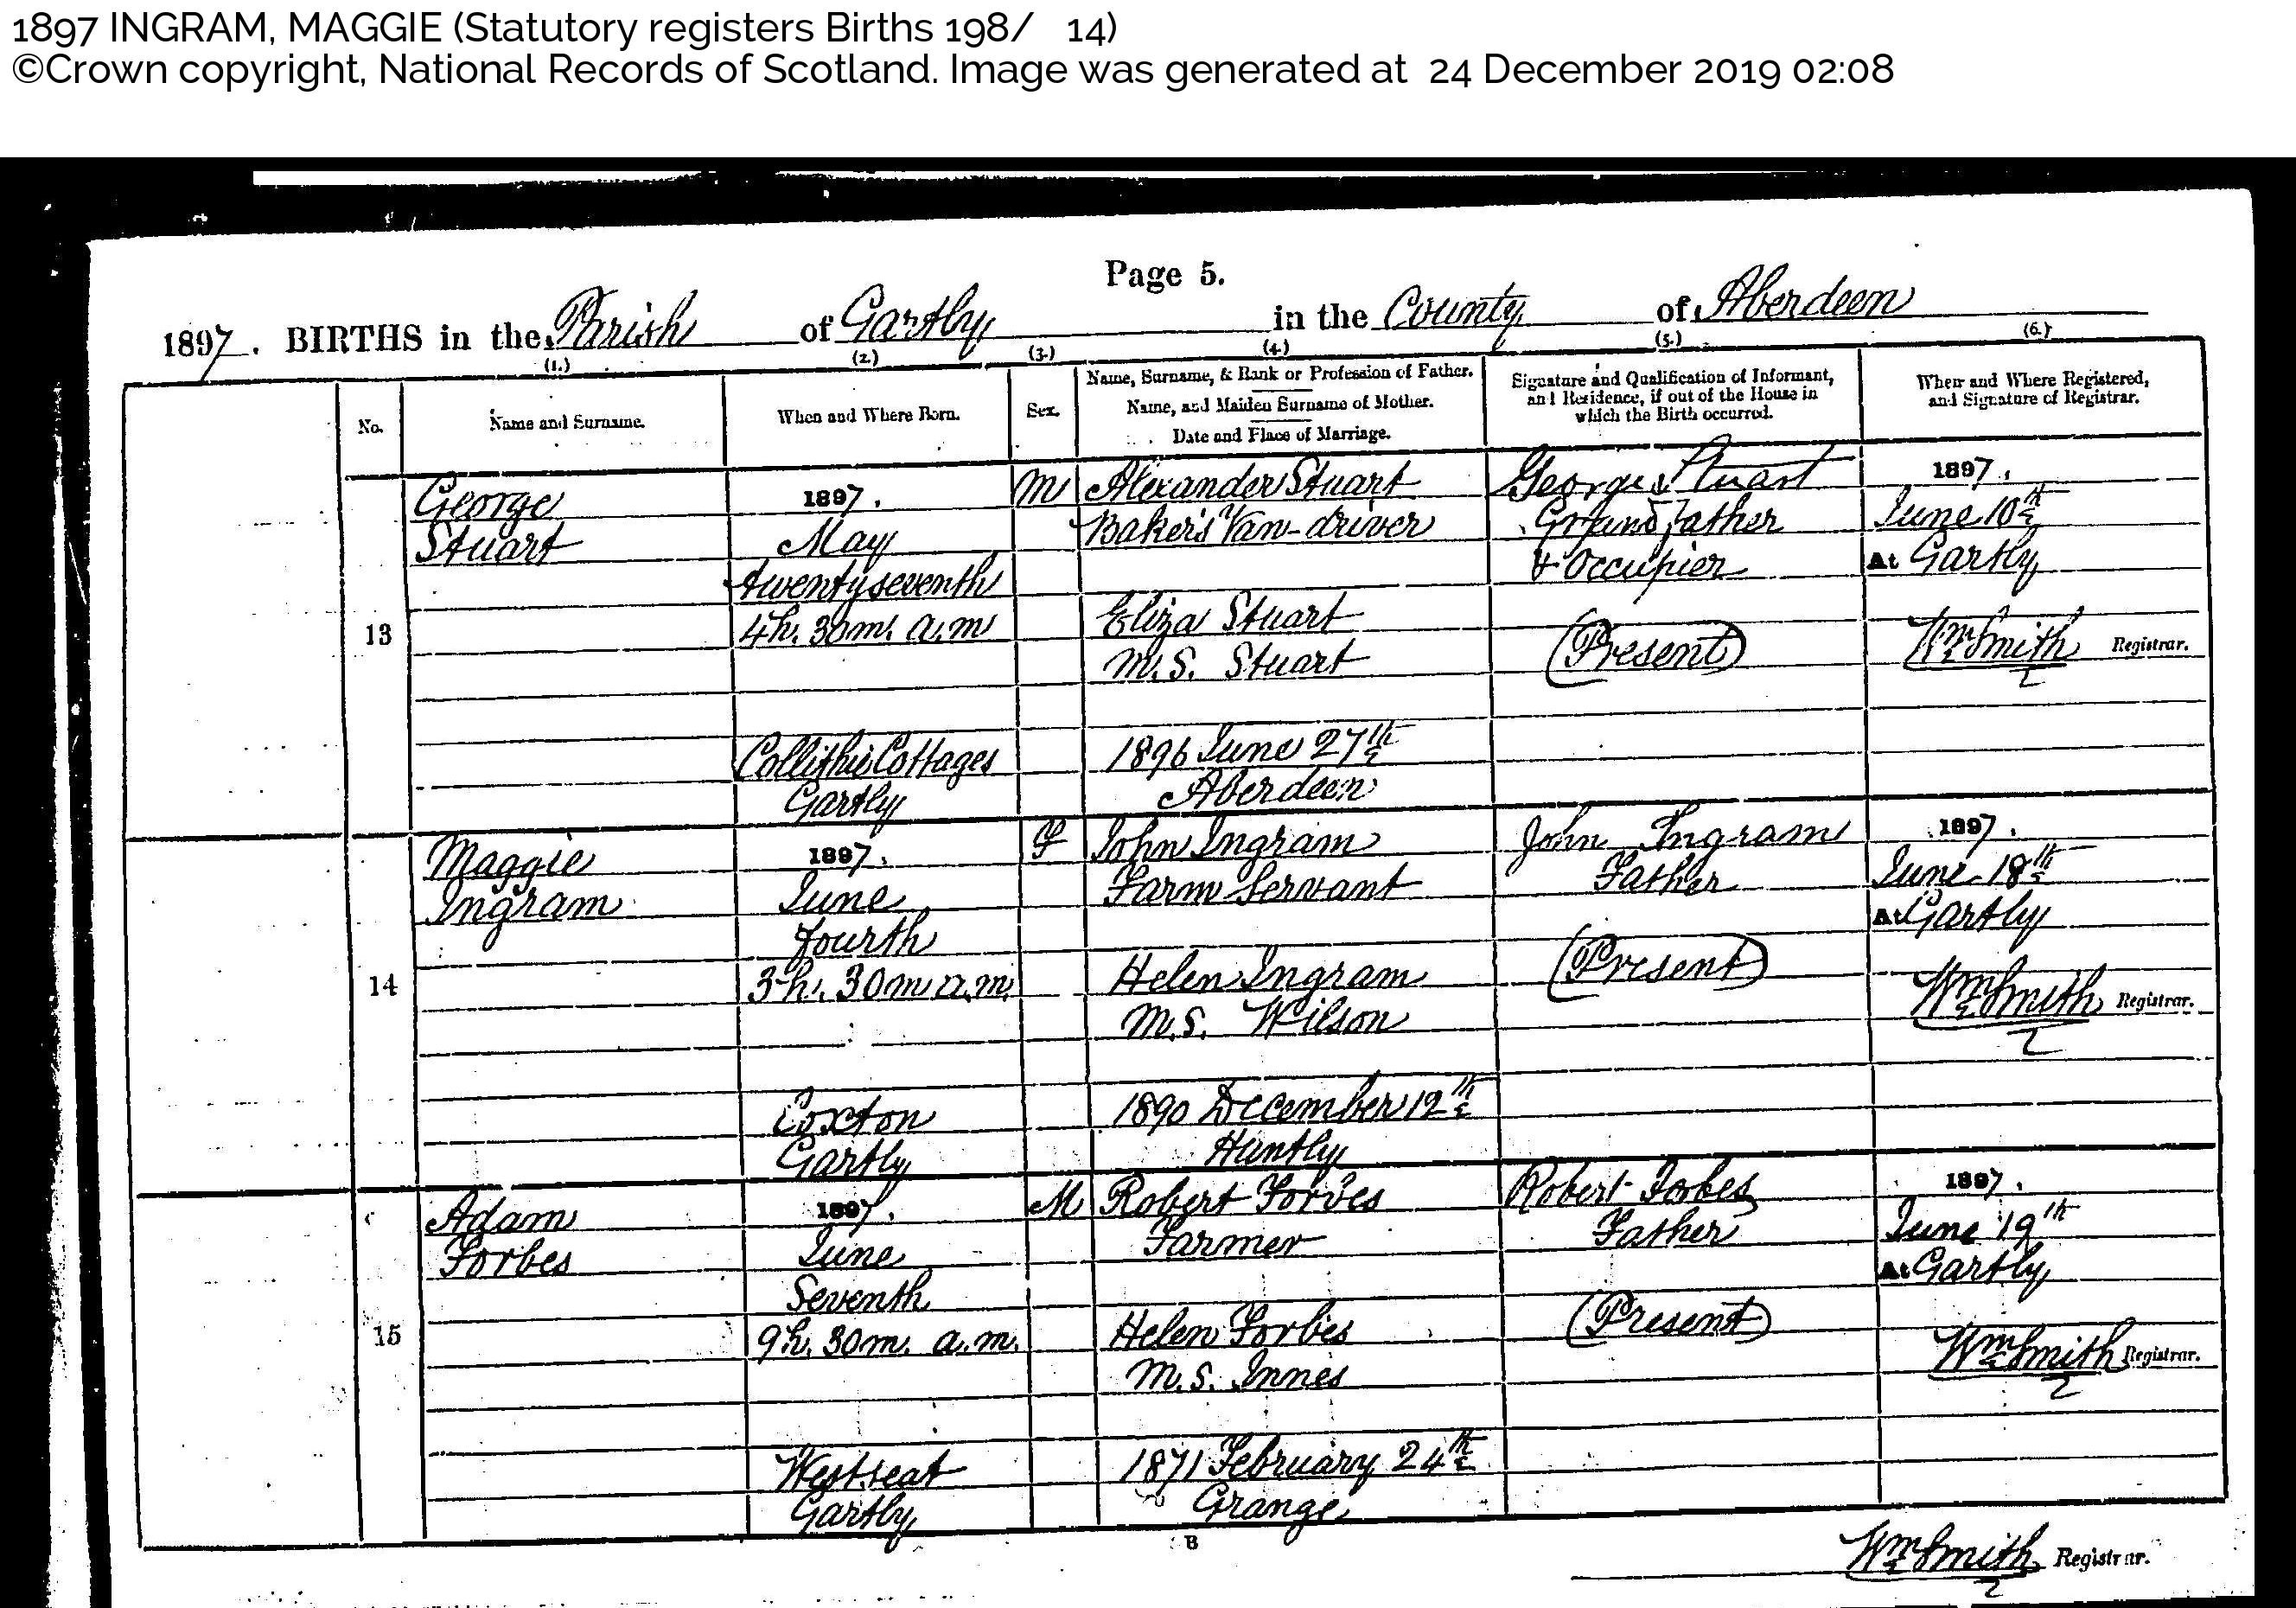 1897 INGRAM, MAGGIE (Statutory registers Births 198/ 14)
©Crown copyright, National Records of Scotland. Image was generated at 24 December 2019 02:08
Page 5.
1897. BIRTHS in the Parish of Gartly in the County of Aberdeen
(1.) (2.) (3.) (4.) (5.) (6.)
No.
Name and Surname.
When and Where Born.
Sex.
Name, Surname, & Rank or Profession of Father.
Name, and Maiden Surname of Mother.
Date and Place of Marriage.
Signature and Qualification of Informant,
and Residence, if out of the House in
which the Birth occurred.
When and Where Registered,
and Signature of Registrar.
13
George
Stuart
1897.
May
twenty seventh
4h. 30m. a.m
Collithie Cottages
Gartly
M
Alexander Stuart
Baker's Van-driver
Eliza Stuart
M.S. Stuart
1896 June 27th
Aberdeen
George Stuart
Grandfather
& Occupier
(Present)
1897.
June 10th
At Gartly
Wm Smith Registrar.
14
Maggie
Ingram
1897.
June
fourth
3h. 30m a.m.
Coxton
Gartly
F
John Ingram
Farm Servant
Helen Ingram
M.S. Wilson
1890 December 12th
Huntly
John Ingram
Father
(Present)
1897.
June 18th
At Gartly
Wm Smith Registrar.
15
Adam
Forbes
1897.
June
Seventh
9h. 30m. a.m.
Westseat
Gartly
M
Robert Forbes
Farmer
Helen Forbes
M.S. Innes
1871 February 24th
Grange
Robert Forbes
Father
(Present)
1897.
June 19th
At Gartly
Wm Smith Registrar.
B
Wm Smith Registrar.